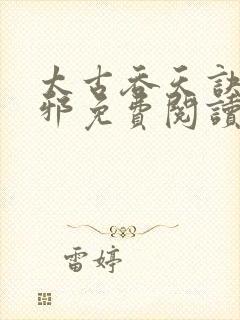 太古吞天訣
邪免費閱讀
雷婷